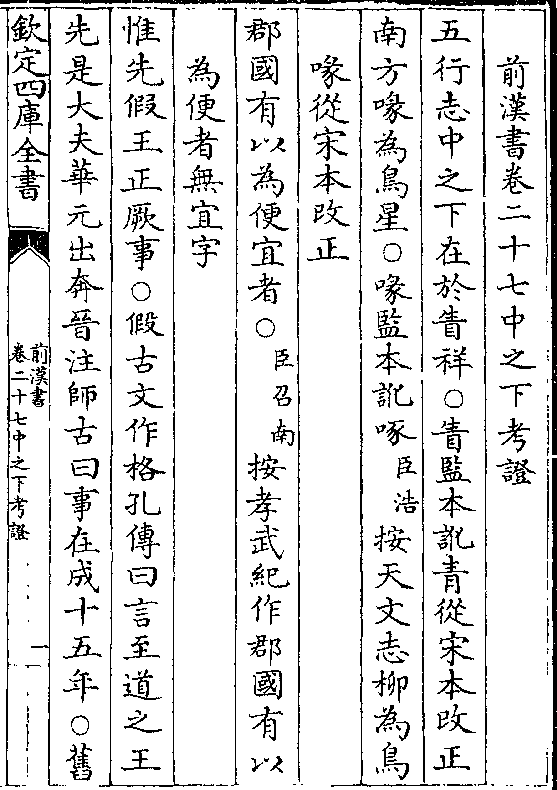 前漢書卷二十七中之下考證
五行志中之下在於眚祥○眚監本訛青從宋本改正
南方喙為鳥星○喙監本訛啄臣浩按天文志柳為鳥
喙從宋本改正
郡國有以為便宜者○臣召南按孝武紀作郡國有以
為便者無宜字
惟先假王正厥事○假古文作格孔傳曰言至道之王
先是大夫華元出奔晉注師古曰事在成十五年○舊
欽定四庫全書
前漢書
卷二十七中之下考證
一